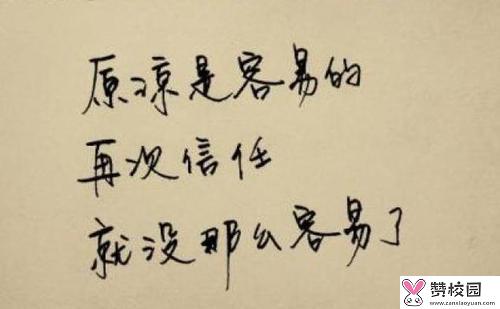 原凉是容易的
再次信任
就没那么容易了
赞校园
www.zanxiaoyuan.com